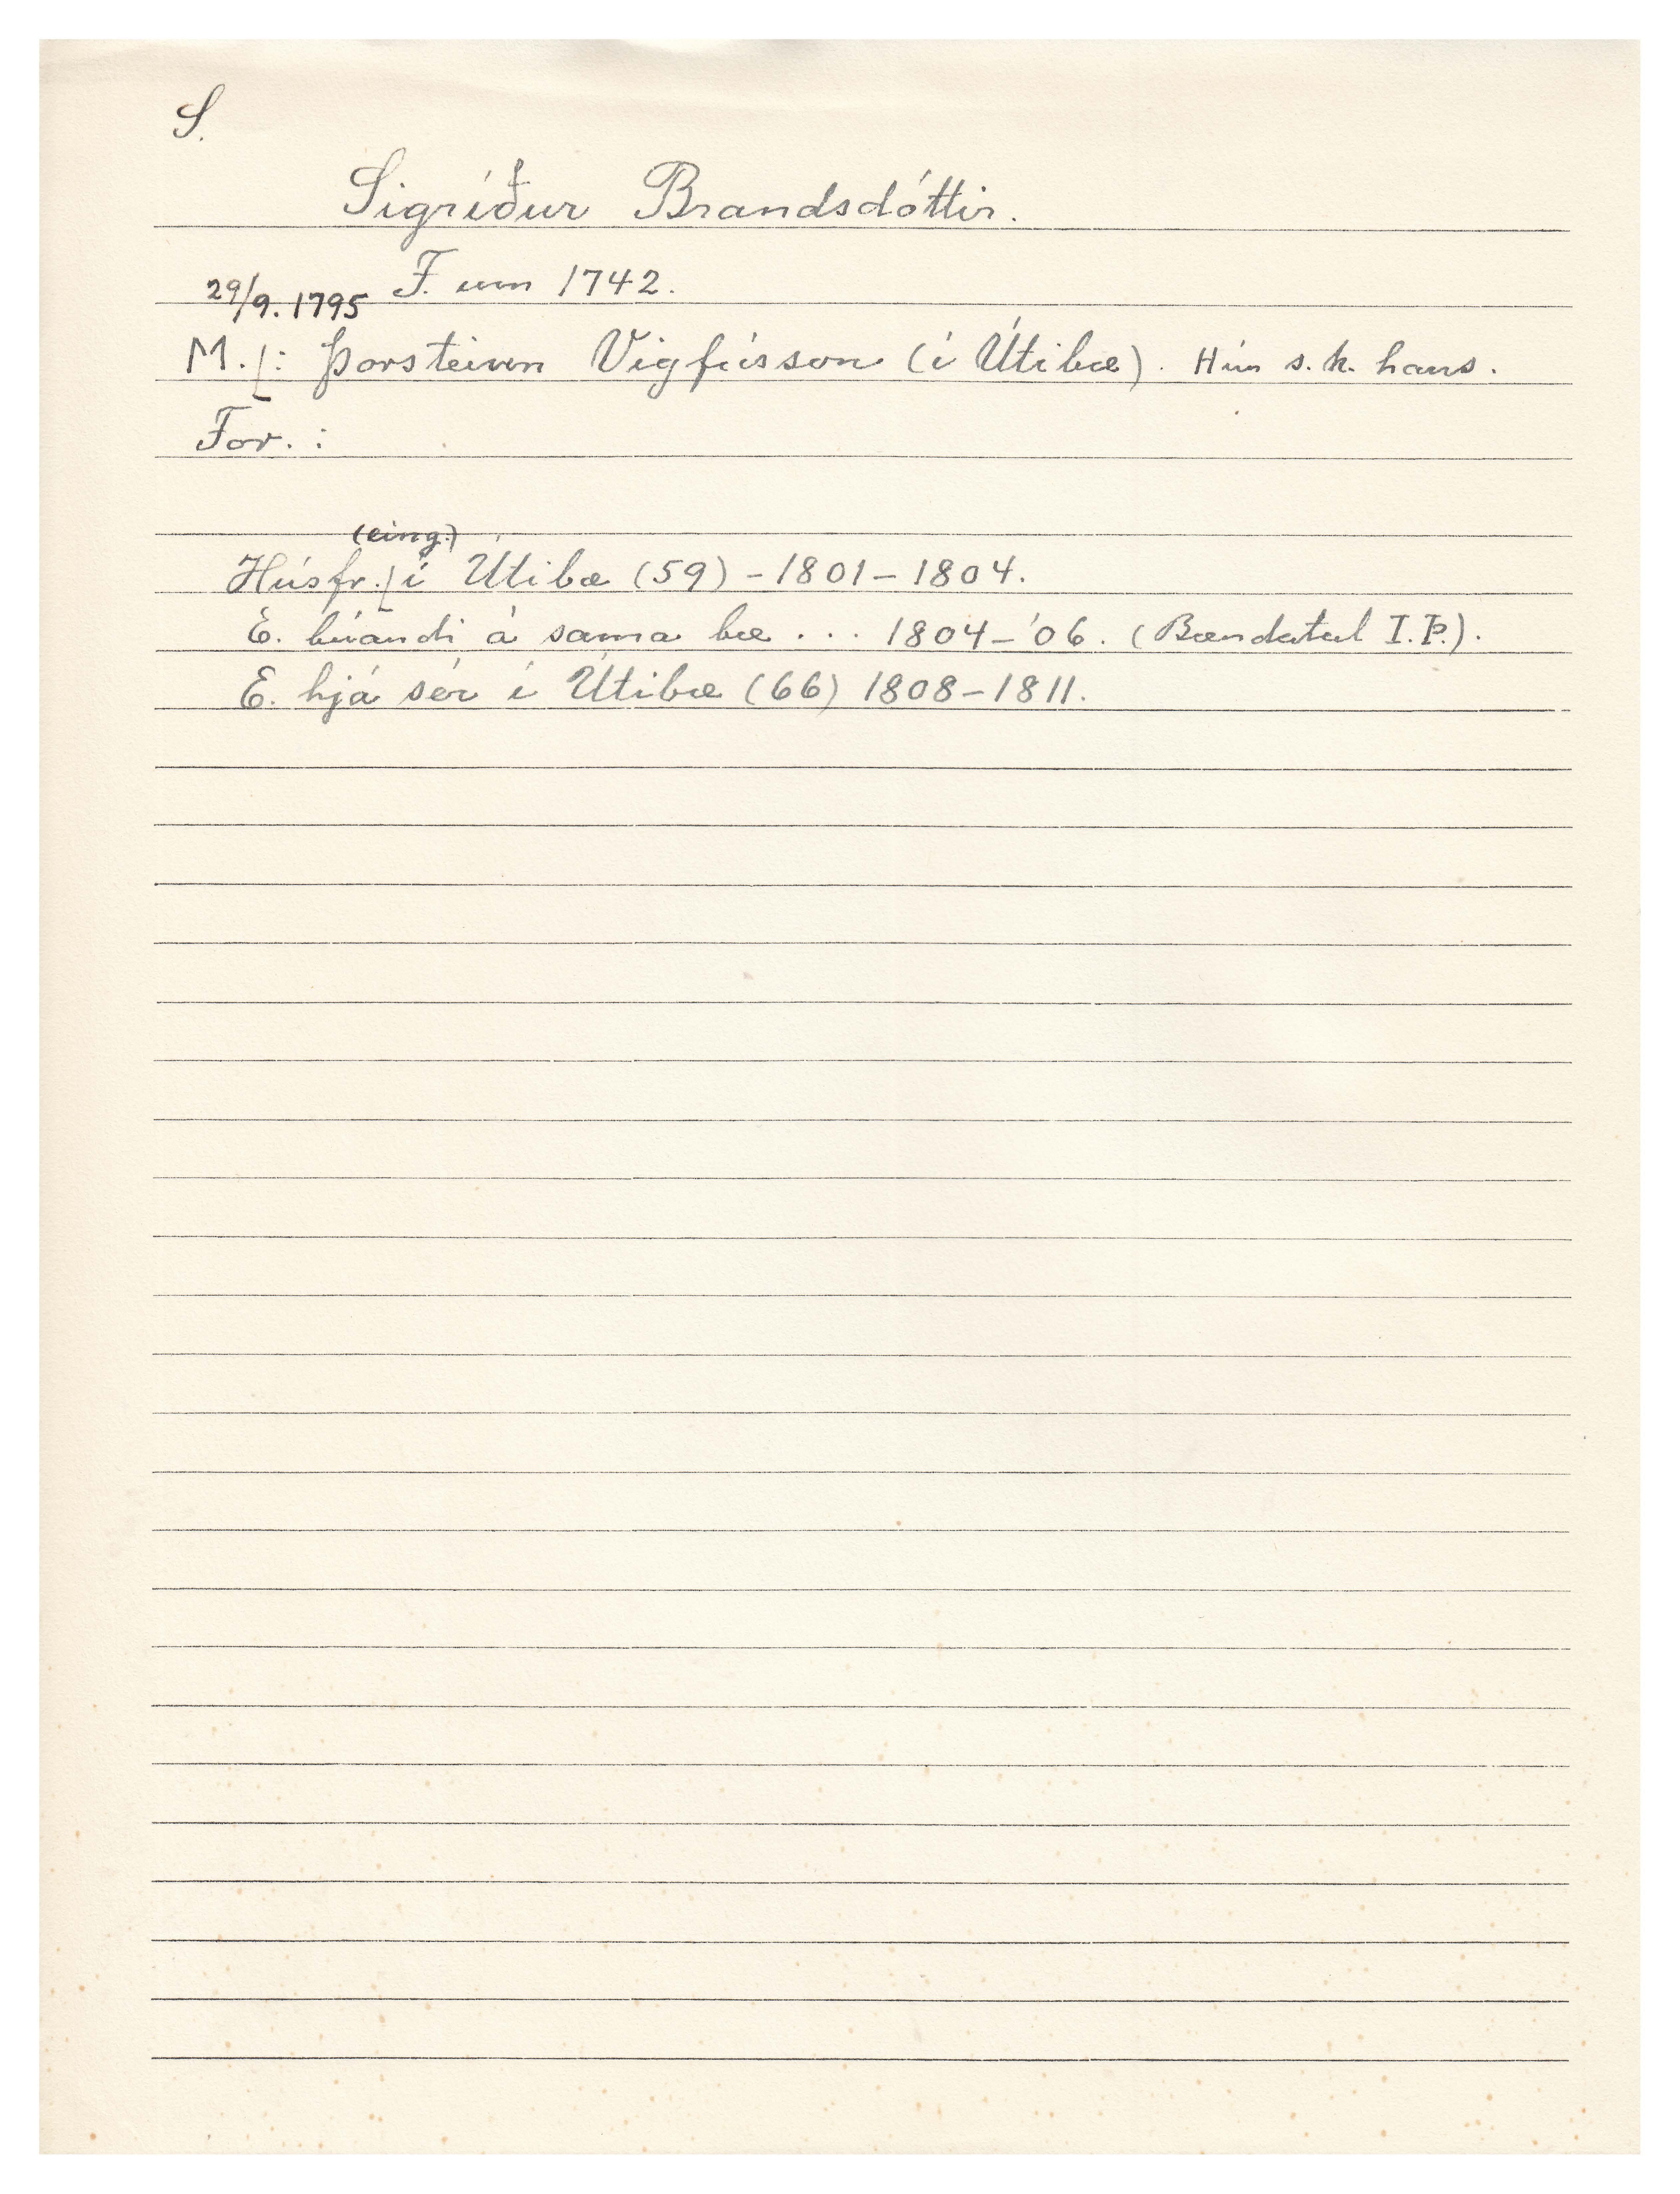 S.
Sigríður Brandsdóttir.
F. um 1742.
29/9. 1795
M.: Þorsteinn Vigfússon (í Útibæ). Hún s.k. hans.
For. :
(eing.)
Húsfr. í Útibæ (59) - 1801 - 1804.
E. búandi á sama bæ ... 1804-'06. (Bændatal I.Þ.).
E. hjá sér í Útibæ (66) 1808-1811.